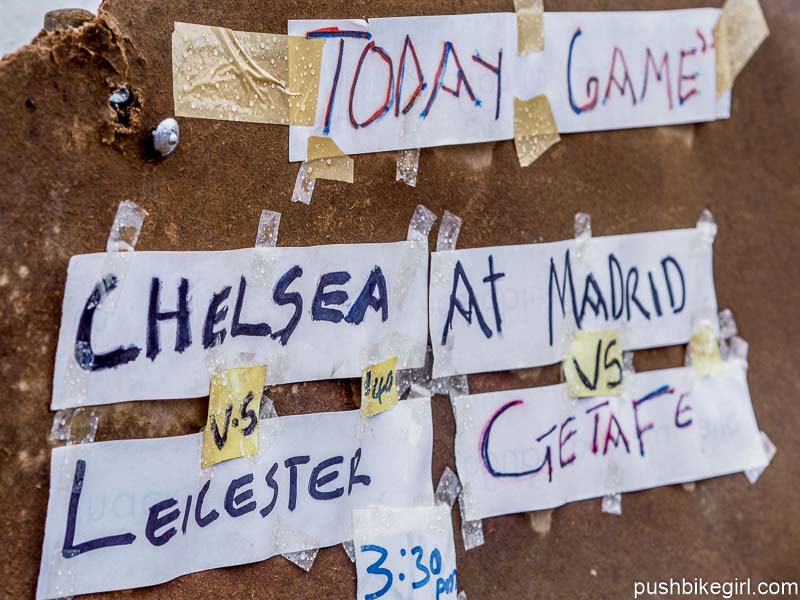 TODAY GAME"
CHELSEA
V.S
LEICESTER
3:30 pm
At MADRID
VS
GETAFE
pushbikegirl.com